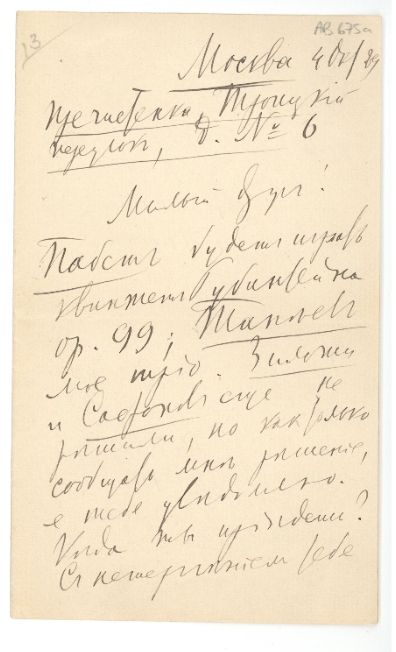 13
AB 675a
Москва 4 Ок/89
Пречистенка, Троицкій
переулокъ, д. № 6
Милый другъ!
Пабстъ будетъ играть
квинтетъ Рубинштейна
op. 99; Танѣевъ
мое тріо. Зилоти
и Сафоновъ еще не
рѣшили, но какъ только
сообщатъ мнѣ рѣшеніе,
я тебе увѣдомлю.
Когда ты пріѣдешь?
Съ нетерпѣніемъ тебе